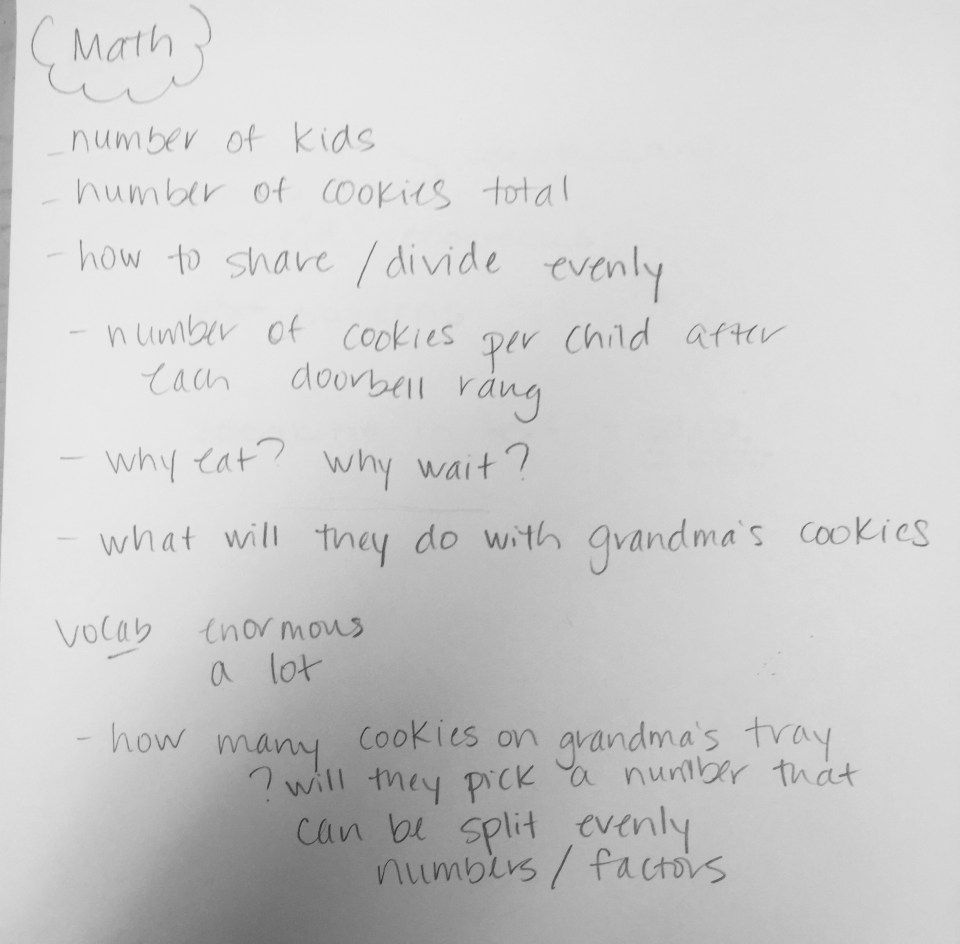 Math
- number of kids
- number of cookies total
- how to share / divide evenly
- number of cookies per child after
each doorbell rang
- why eat? why wait?
- what will they do with grandma's cookies
vocab enormous
a lot
- how many cookies on grandma's tray
? will they pick a number that
can be split evenly
numbers / factors